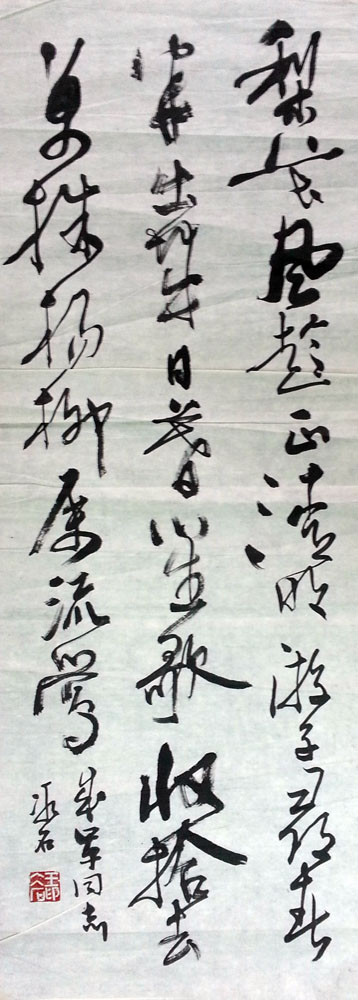 梨花风起正清明游子寻春
半出城日暮笙歌收拾去
万株杨柳属流莺
军同志
石